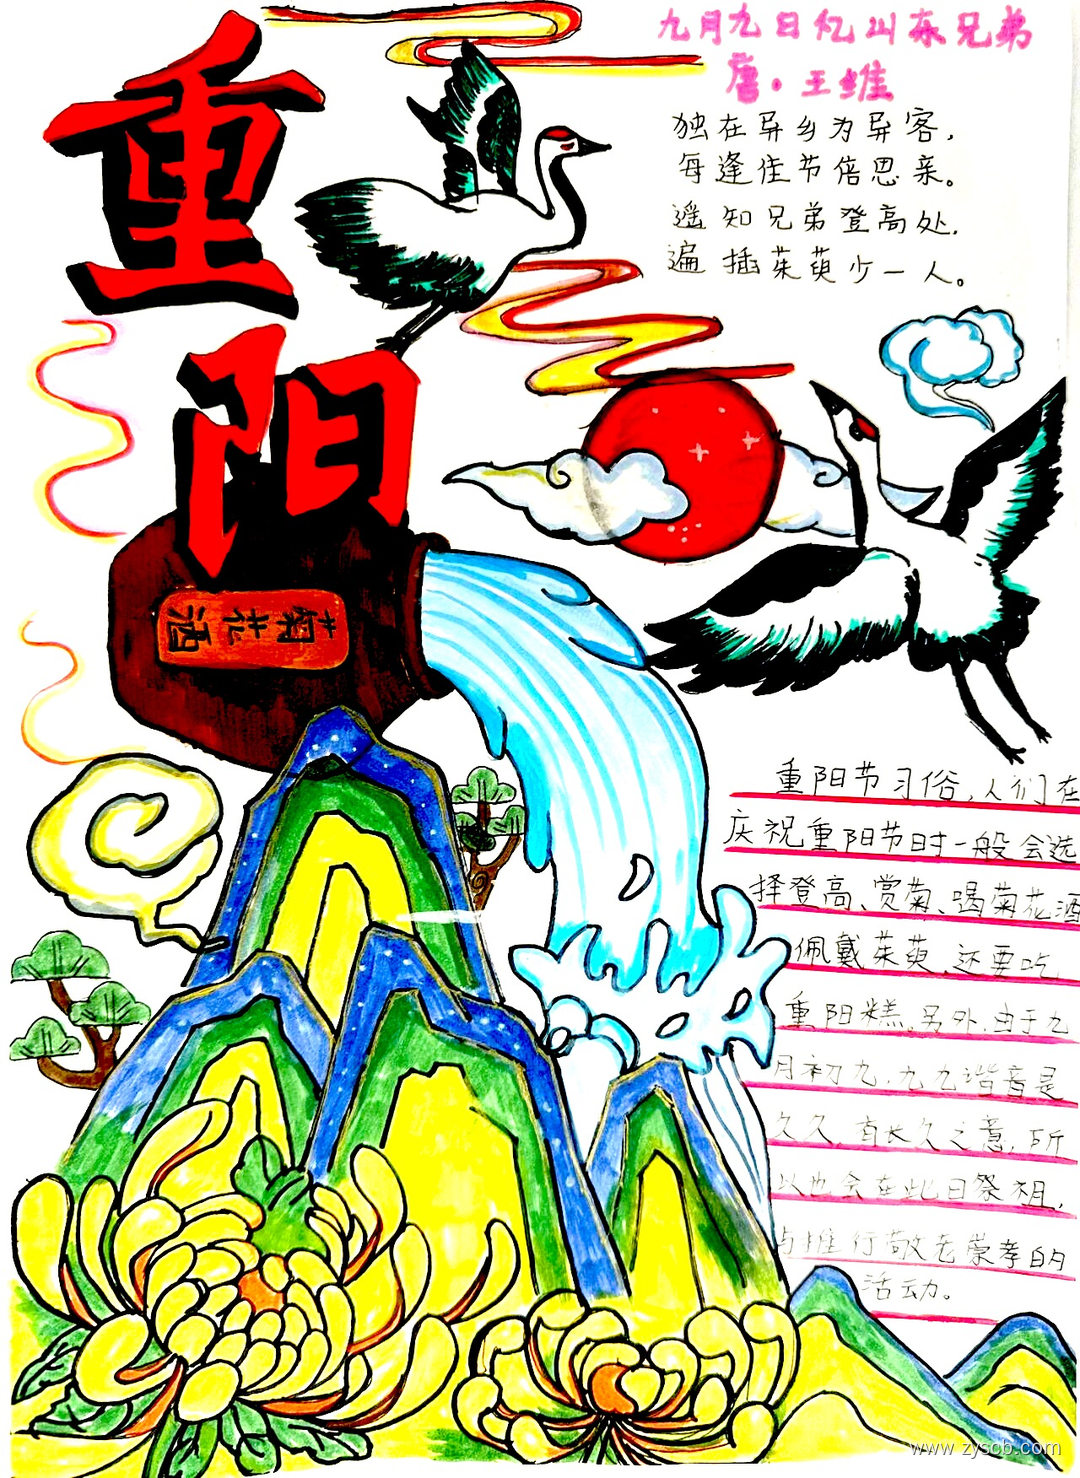 重阳
九月九日忆山东兄弟
唐·王维
独在异乡为异客，
每逢佳节倍思亲。
遥知兄弟登高处，
遍插茱萸少一人。
菊花酒
重阳节习俗，人们在
庆祝重阳节时一般会选
择登高、赏菊、喝菊花酒
佩戴茱萸，还要吃
重阳糕。另外，由于九
月初九，九九谐音是
久久，有长久之意，所
以也会在此日祭祖，
与推行敬老崇孝的
活动。
www.zyscb.com